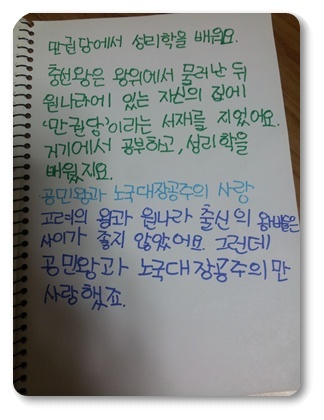 만권당에서 성리학을 배워요.
충선왕은 왕위에서 물러난 뒤
원나라에 있는 자신의 집에
'만권당'이라는 서재를 지었어요.
거기에서 공부하고, 성리학을
배웠지요.
공민왕과 노국대장공주의 사랑
고려의 왕과 원나라 출신의 왕비들은
사이가 좋지 않았어요. 그런데
공민왕과 노국대장공주의만
사랑했죠.